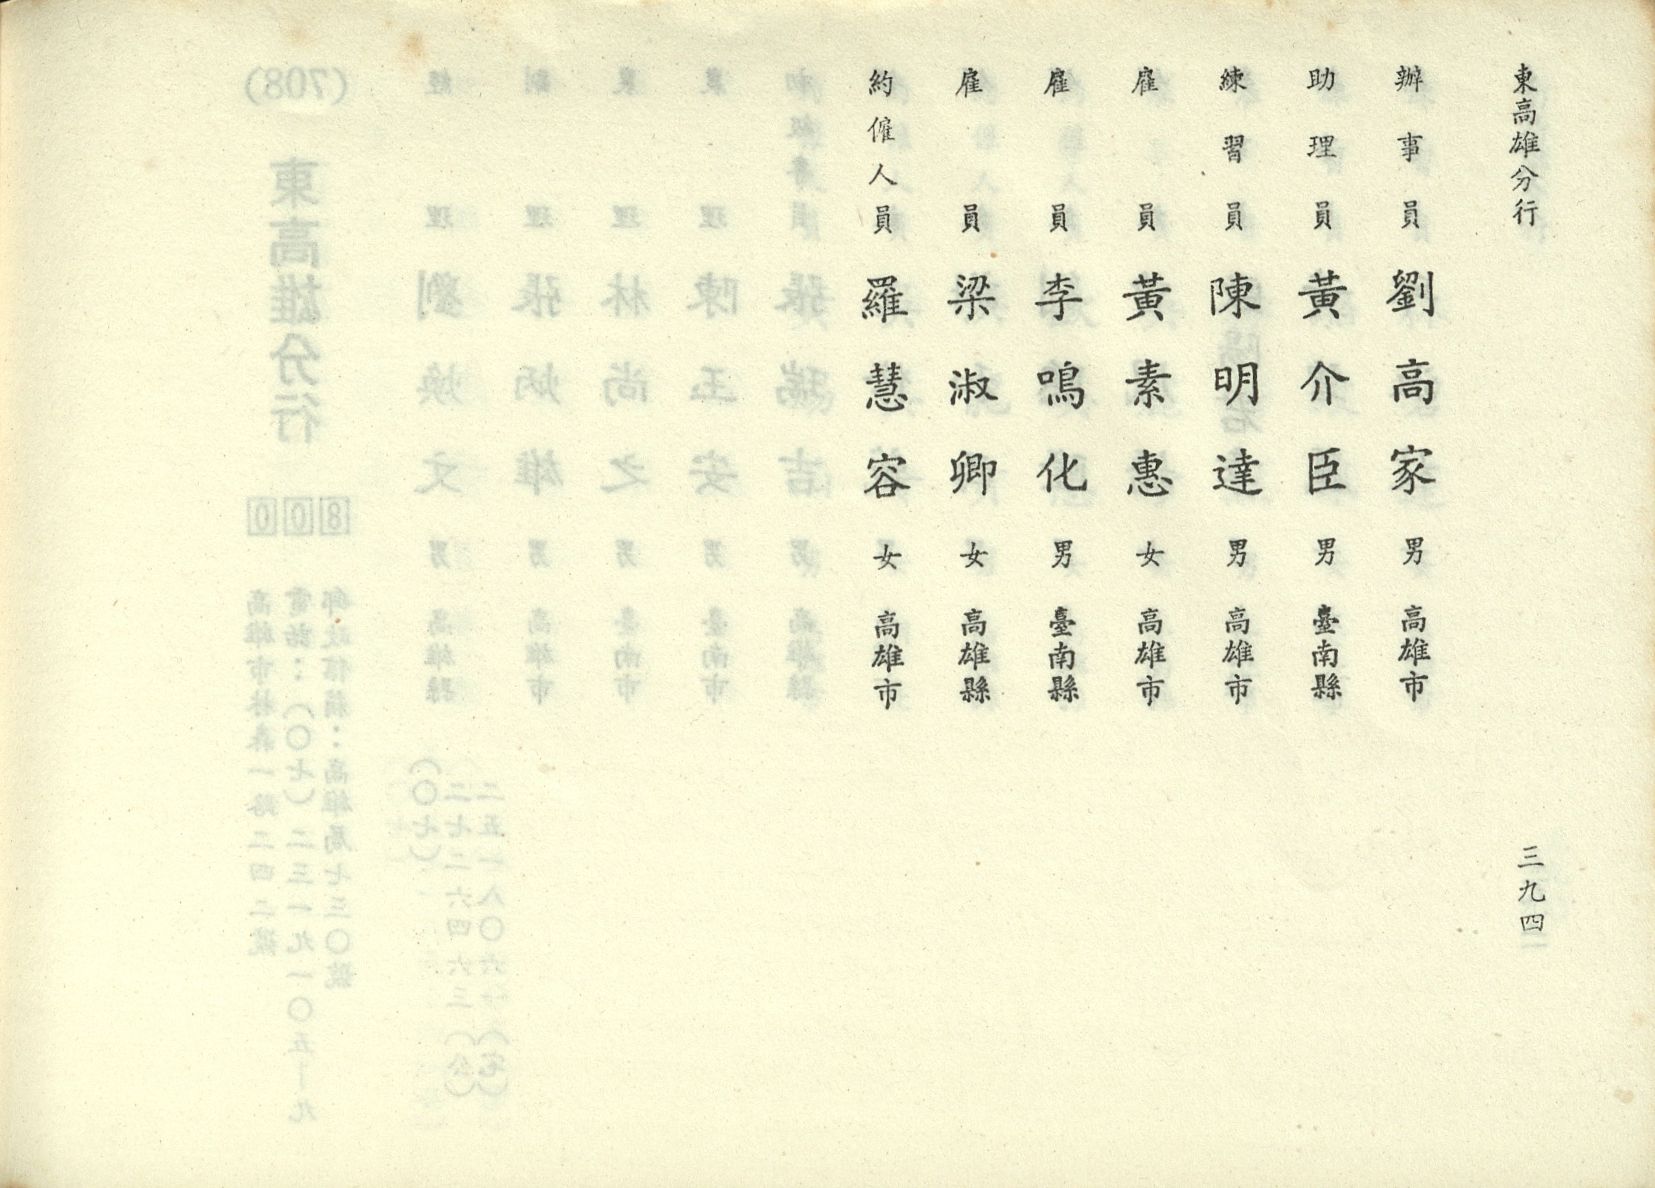 東高雄分行
三九四
辦事員 劉高家 男 高雄市
助理員 黃介臣 男 臺南縣
練習員 陳明達 男 高雄市
雇員 黃素惠 女 高雄市
雇員 李鳴化 男 臺南縣
雇員 梁淑卿 女 高雄縣
約僱人員 羅慧容 女 高雄市